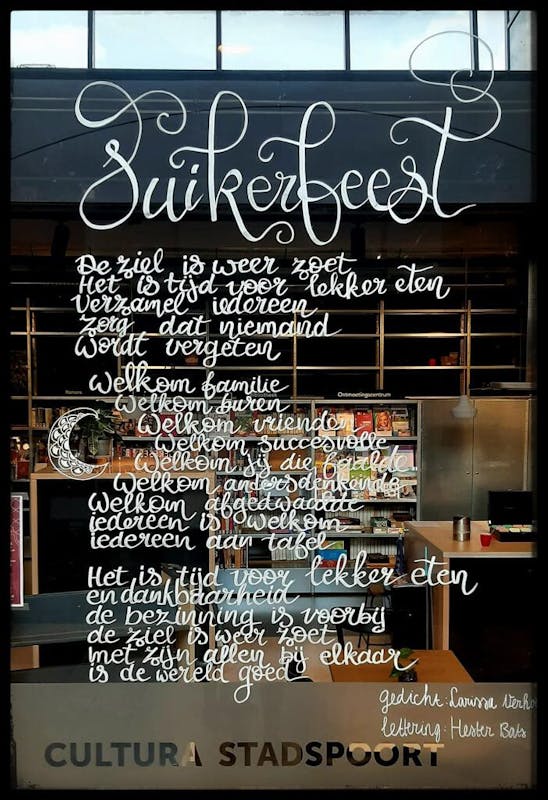 Suikerfeest
De ziel is weer zoet
Het is tijd voor lekker eten
Verzamel iedereen
zorg dat niemand
wordt vergeten
Welkom familie
Welkom buren
Welkom vrienden
Welkom succesvolle
Welkom jij die faalde
Welkom andersdenkende
Welkom afgedwaalde
iedereen is welkom
iedereen aan tafel
Het is tijd voor lekker eten
en dankbaarheid
de bezinning is voorbij
de ziel is weer zoet
met zijn allen bij elkaar
is de wereld goed
gedicht: Larissa Verho
lettering: Hester Bats
CULTURA STADSPOORT
Romans
Ontmoetingscentrum